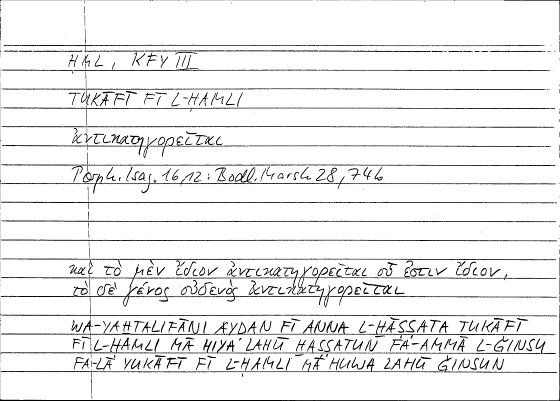 HML, KFY III
TUKĀFĪ FĪ L-HAMLI
ἀντικατηγορεῖται
Porph. Isag. 16,12: Bodl. Marsh 28, 74b
καὶ τὸ μὲν ἴδιον ἀντικατηγορεῖται οὗ ἐστιν ἴδιον,
τὸ δὲ γένος οὐδενὸς ἀντικατηγορεῖται
WA-YAHTALIFĀNI AYDAN FĪ ANNA L-HĀSSATA TUKĀFĪ
FĪ L-HAMLI MĀ HIYA LAHŪ HASSATUN FA-AMMĀ L-ǦINSU
FA-LĀ YUKĀFĪ FĪ L-HAMLI MĀ HUWA LAHŪ ǦINSUN